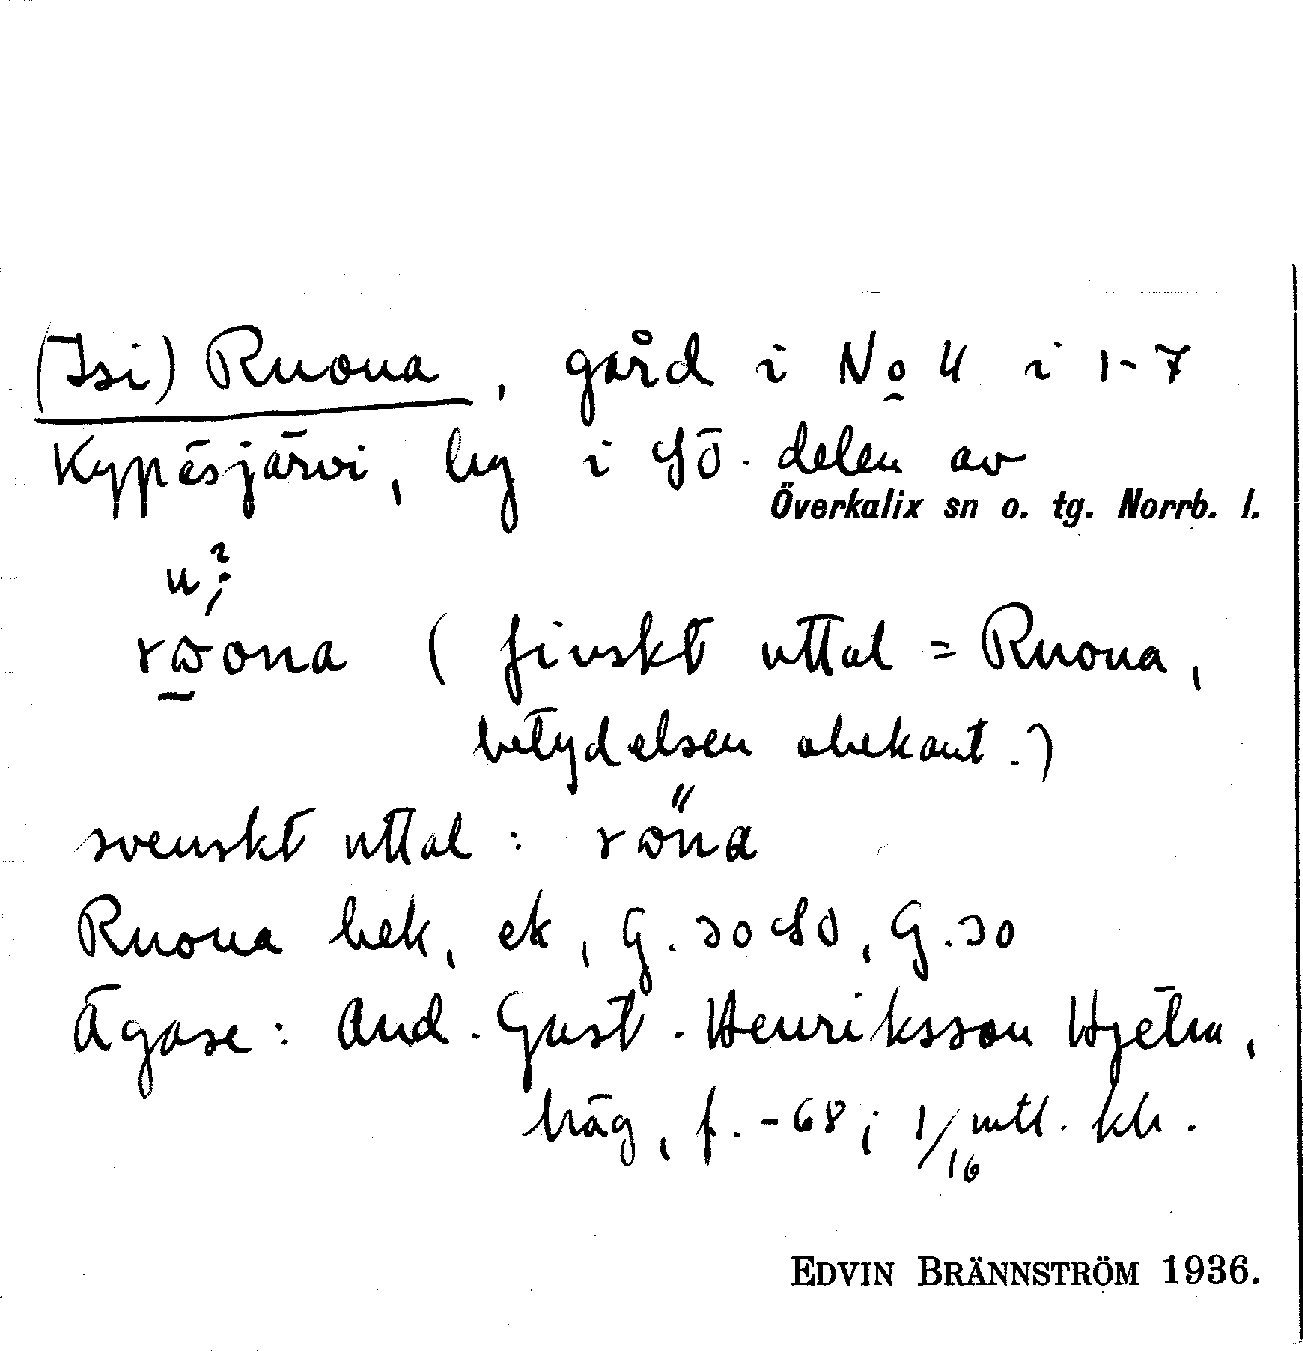 (Isi) Ruona, gård i No 4 i 1-7
Kypesjärvi, by i SÖ. delen av
Överkalix sn o. tg. Norrb. l.
u?;
rωona (finskt uttal = Ruona,
betydelsen obekant.)
svenskt uttal: rωna
Ruona bek, ek, G. 30 SO, G. 30
Ägare: And. Gust. Henriksson Hjelm,
häg, f. -68; 1/16 mtl. kh.
EDVIN BRÄNNSTRÖM 1936.